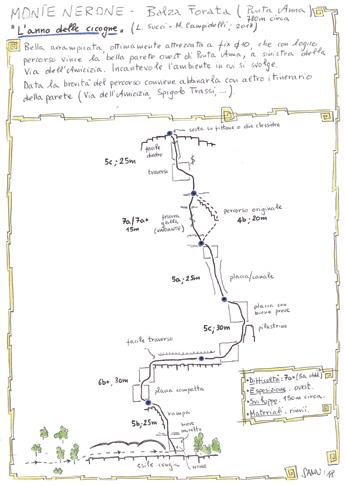 MONTE NERONE - Balza Forata (Punta Anna)
780m circa
"L'anno delle cicogne" (L. Succi - M. Campidelli; 2018)
Bella arrampicata, ottimamente attrezzata a fix ø10, che con logico
percorso vince la bella parete ovest di Punta Anna, a sinistra della
Via dell'Amicizia. Incantevole l'ambiente in cui si svolge.
Data la brevità del percorso conviene abbinarla con altro itinerario
della parete (Via dell'Amicizia, Spigolo Trassi, ...).
sosta su fittone o due clessidre
facile
diedro
5c; 25m
traverso
7a/7a+
15m
fascia
gialla
percorso originale
4b; 20m
5a; 25m
placca/canale
placca con
buone prese
5c; 30m
pilastrino
facile traverso
6b+, 30m
placca compatta
rampa
5b; 25m
breve
muretto
nome
• Difficoltà: 7a+ (5a obbl.)
• Esposizione: ovest.
• Sviluppo: 150m circa.
• Materiali: rinvii.
SAMU '18